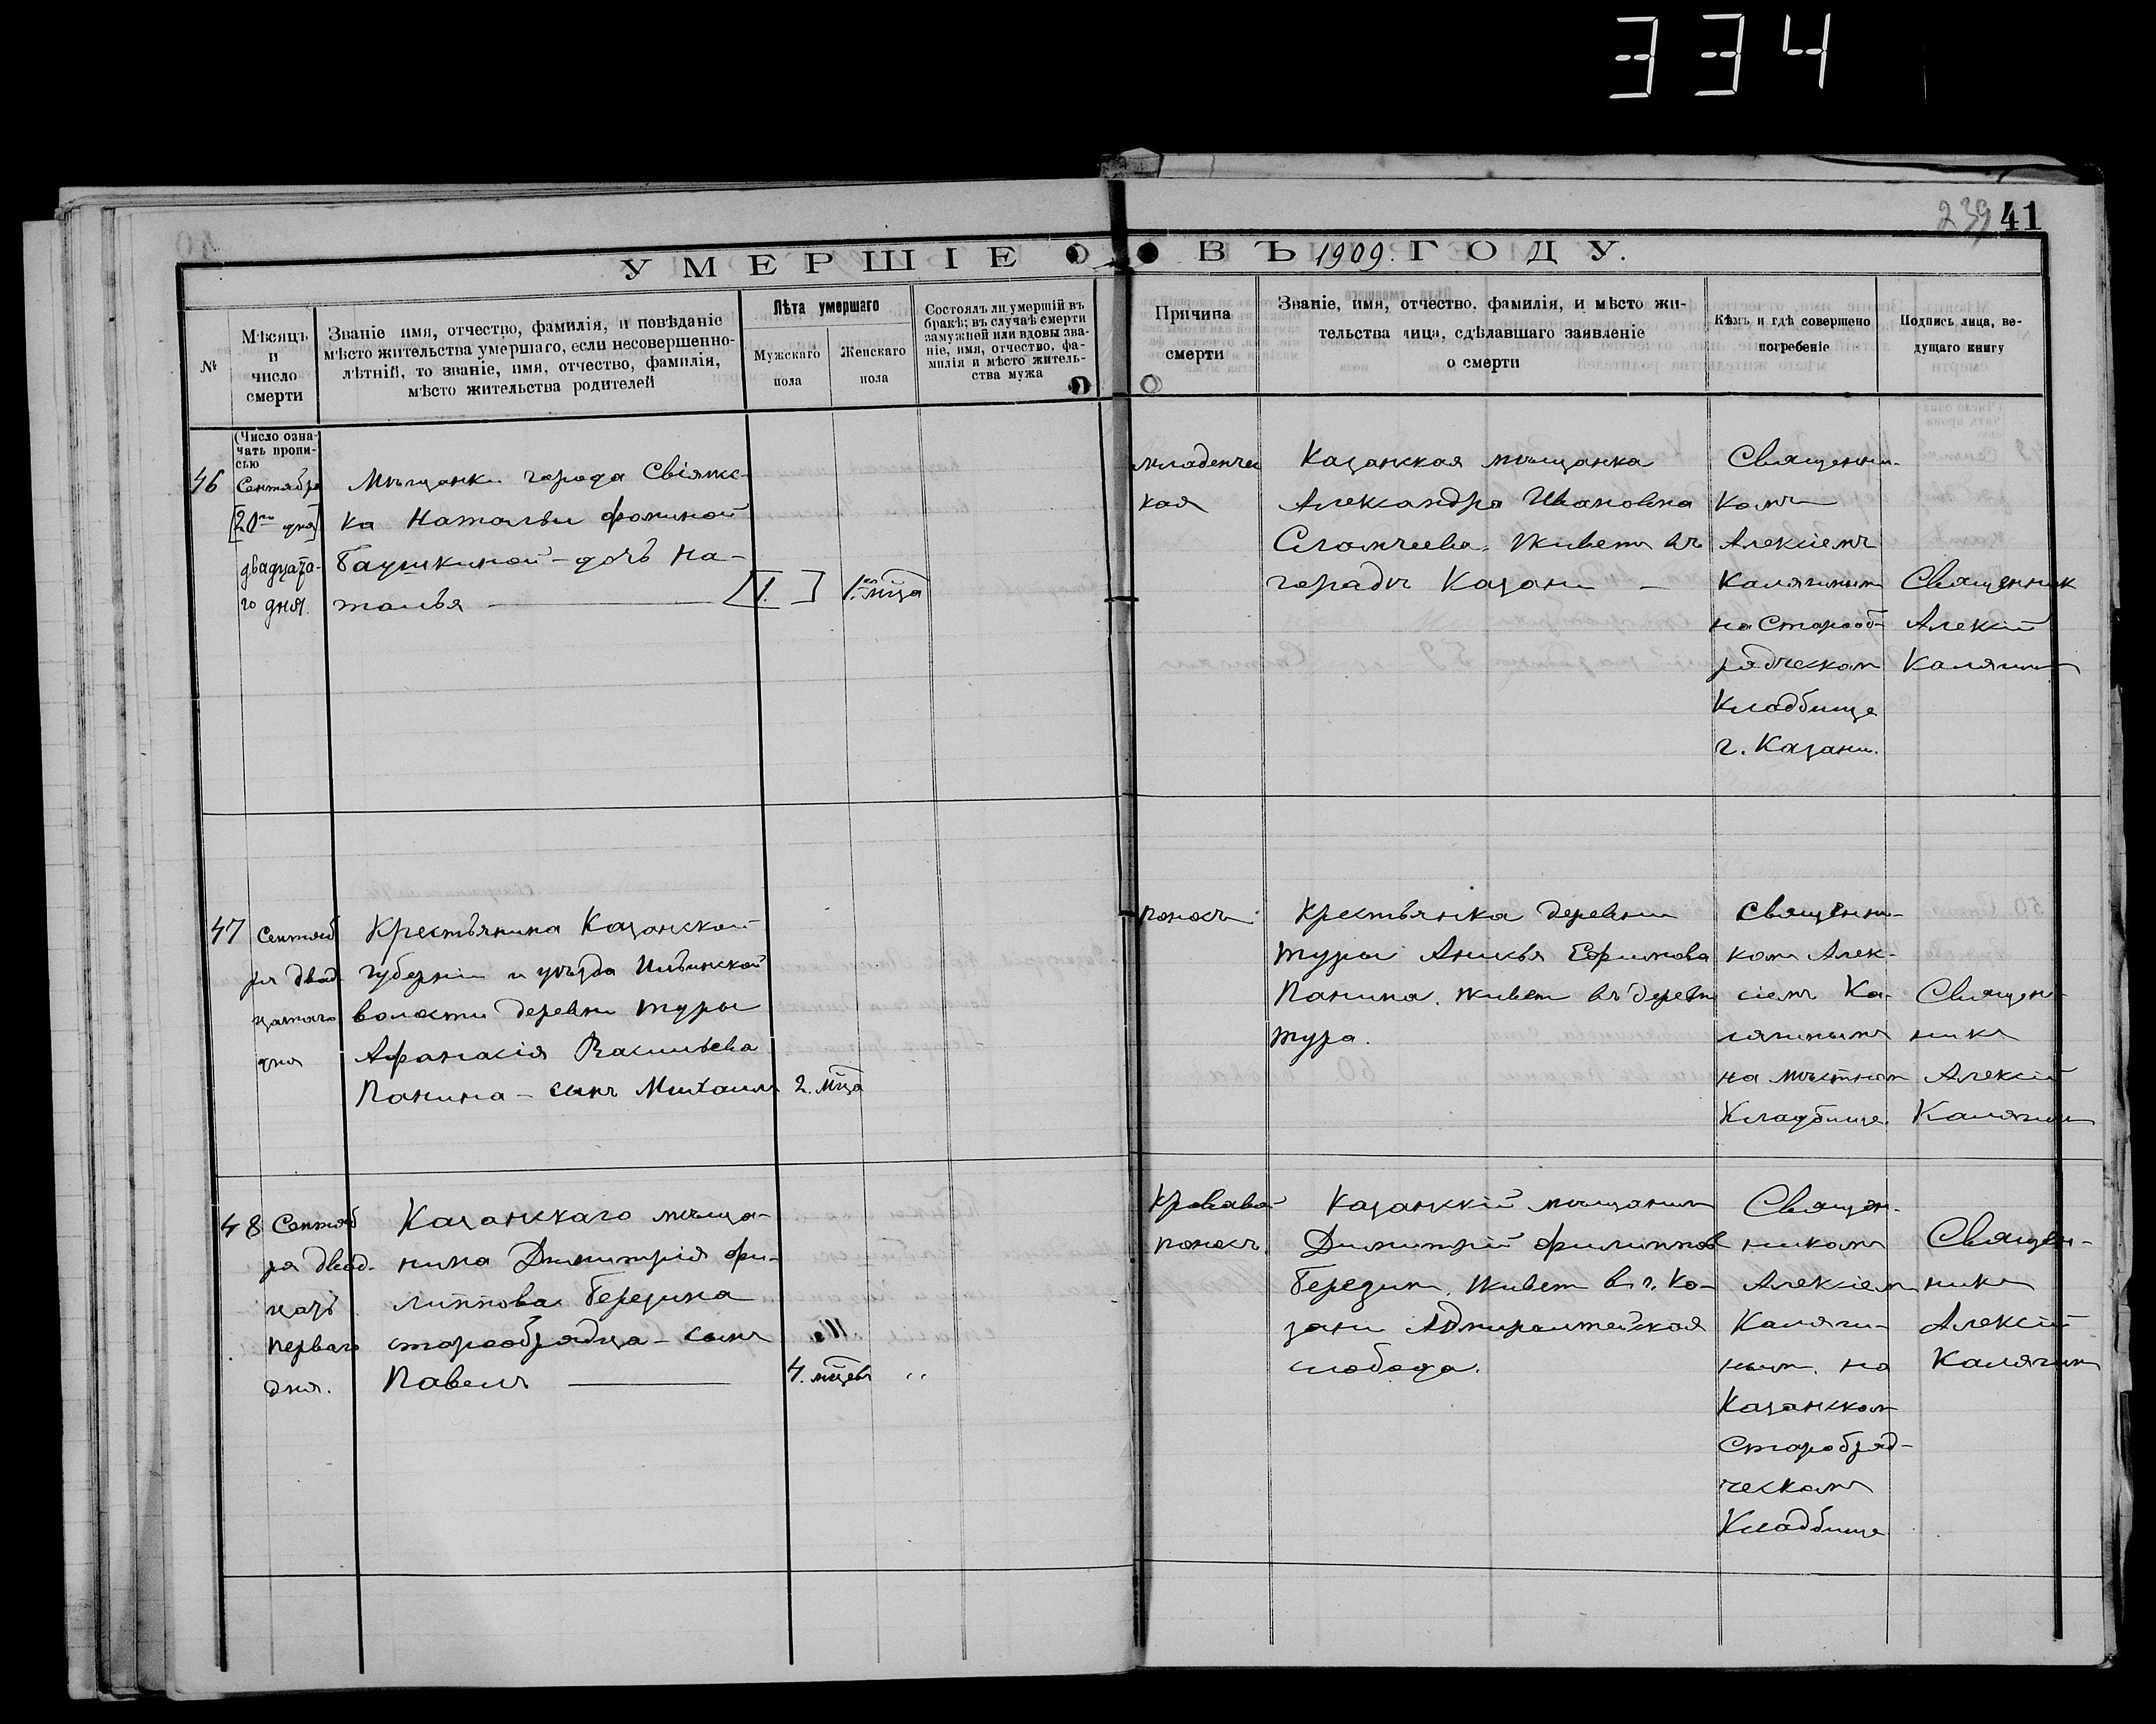 334
239 41
УМЕРШІЕ ВЪ 1909. ГОДУ.
№
Мѣсяцъ
и
число
смерти
Званіе имя, отчество, фамилія, и повѣданіе
мѣсто жительства умершаго, если несовершенно-
лѣтній, то званіе, имя, отчество, фамилія,
мѣсто жительства родителей
Лѣта умершаго
Мужскаго
пола
Женскаго
пола
Состоялъ ли умершій въ
бракѣ; въ случаѣ смерти
замужней или вдовы зва-
ніе, имя, отчество, фа-
милія и мѣсто житель-
ства мужа
Причина
смерти
Званіе, имя, отчество, фамилія, и мѣсто жи-
тельства лица, сдѣлавшаго заявленіе
о смерти
Кѣмъ и гдѣ совершено
погребеніе
Подпись лица, ве-
дущаго книгу
(Число озна-
чать пропи-
сью
46
Сентября
[20го дня]
двадцата-
го дня.
Мѣщанки города Свіяжс-
ка Натальи Фоминой
Баушкиной - дочь На-
талья
[1. ]
1. мца
младенчес
кая
Казанская мѣщанка
Александра Ивановна
Живетъ въ
городѣ Казани
Священни-
комъ
Алексіемъ
Калягинымъ
на Старооб-
рядческом
Кладбище
г. Казани.
Священник
Алексій
Калягинъ
47
Сентяб
ря двад-
цатаго
дня
Крестьянина Казанской
губерніи и уѣзда Ильинской
волости деревни Туры
Афанасія Васильева
Панина - сынъ Михаилъ
2. мца
поносъ
Крестьянка деревни
Туры Анисья Ефимова
Панина. живет въ деревн
Тура.
Священни-
ком Алек-
сіемъ Ка-
лягинымъ
на мѣстном
Кладбище.
Священ-
никъ
Алексій
Калягинъ
48
Сентяб
ря двад-
цать
перваго
дня.
Казанскаго мѣща-
нина Димитрія Фи-
липпова Березина
старообрядца - сынъ
Павелъ
4. мцевъ
"
Кровавой
поносъ.
Казанскій мѣщанинъ
Димитрій Филиппов
Березин. Живет в г. Ка-
зани Адмиралтейская
слобода.
Священ-
никомъ
Алексіем
Каляги-
ным. на
Казанском
Старобряд-
ческомъ
Кладбище
Священ-
никъ
Алексій
Калягин